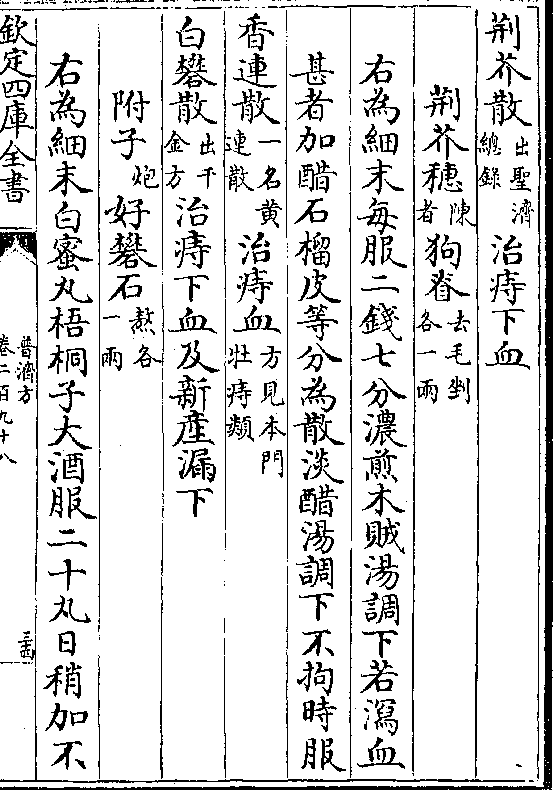 荆芥散出聖濟總錄治痔下血
荆芥穗陳者狗脊去毛剉各一兩
右為細末每服二錢七分濃煎木賊湯調下若瀉血
甚者加醋石榴皮等分為散淡醋湯調下不拘時服
香連散一名黄連散治痔血方見本門牡痔類
白礬散出千金方治痔下血及新産漏下
附子炮好礬石熬各一兩
右為細末白蜜丸梧桐子大酒服二十丸日稍加不
欽定四庫全書
普濟方
卷二百九十八